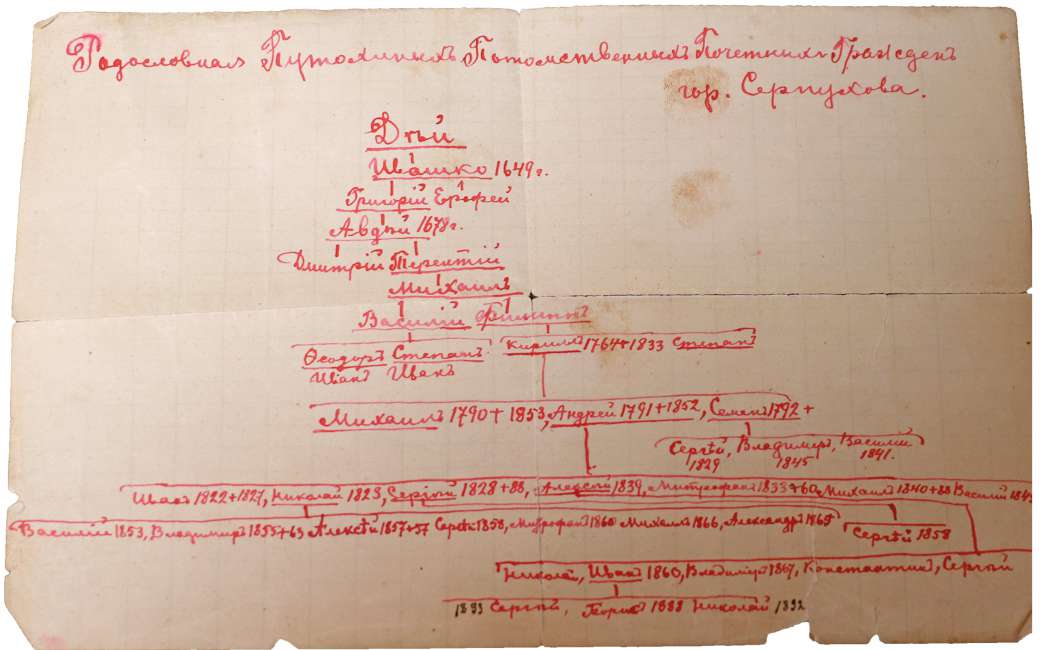 Родословная Путохиныхъ Потомственныхъ Почетныхъ Гражданъ
гор. Серпухова.
Дѣй
Ивашко 1649 г.
Григорій Ерофей
Авдѣй 1678 г.
Дмитрій Терентій
Михаилъ
Василій Филиппъ
Ѳеодоръ Степанъ Кириллъ 1764+1833 Степанъ
Иванъ Иванъ
Михаилъ 1790+1853, Андрей 1791+1852, Семенъ 1792+
Сергѣй, Владимиръ, Василій
1829 1845 1841.
Иванъ 1822+1827, Николай 1823, Сергѣй 1828+88, Алексѣй 1839, Митрофанъ 1833+60 Михаилъ 1840+88 Василий
Василій 1853, Владимиръ 1855+63 Алексѣй 1857+57 Сергѣй 1858, Митрофанъ 1860 Михаилъ 1866, Александръ 1865
Сергѣй 1858
Николай, Иванъ 1860, Владиміръ 1867, Константинъ, Сергѣй
1893 Сергѣй, Борисъ 1888 Николай 1892